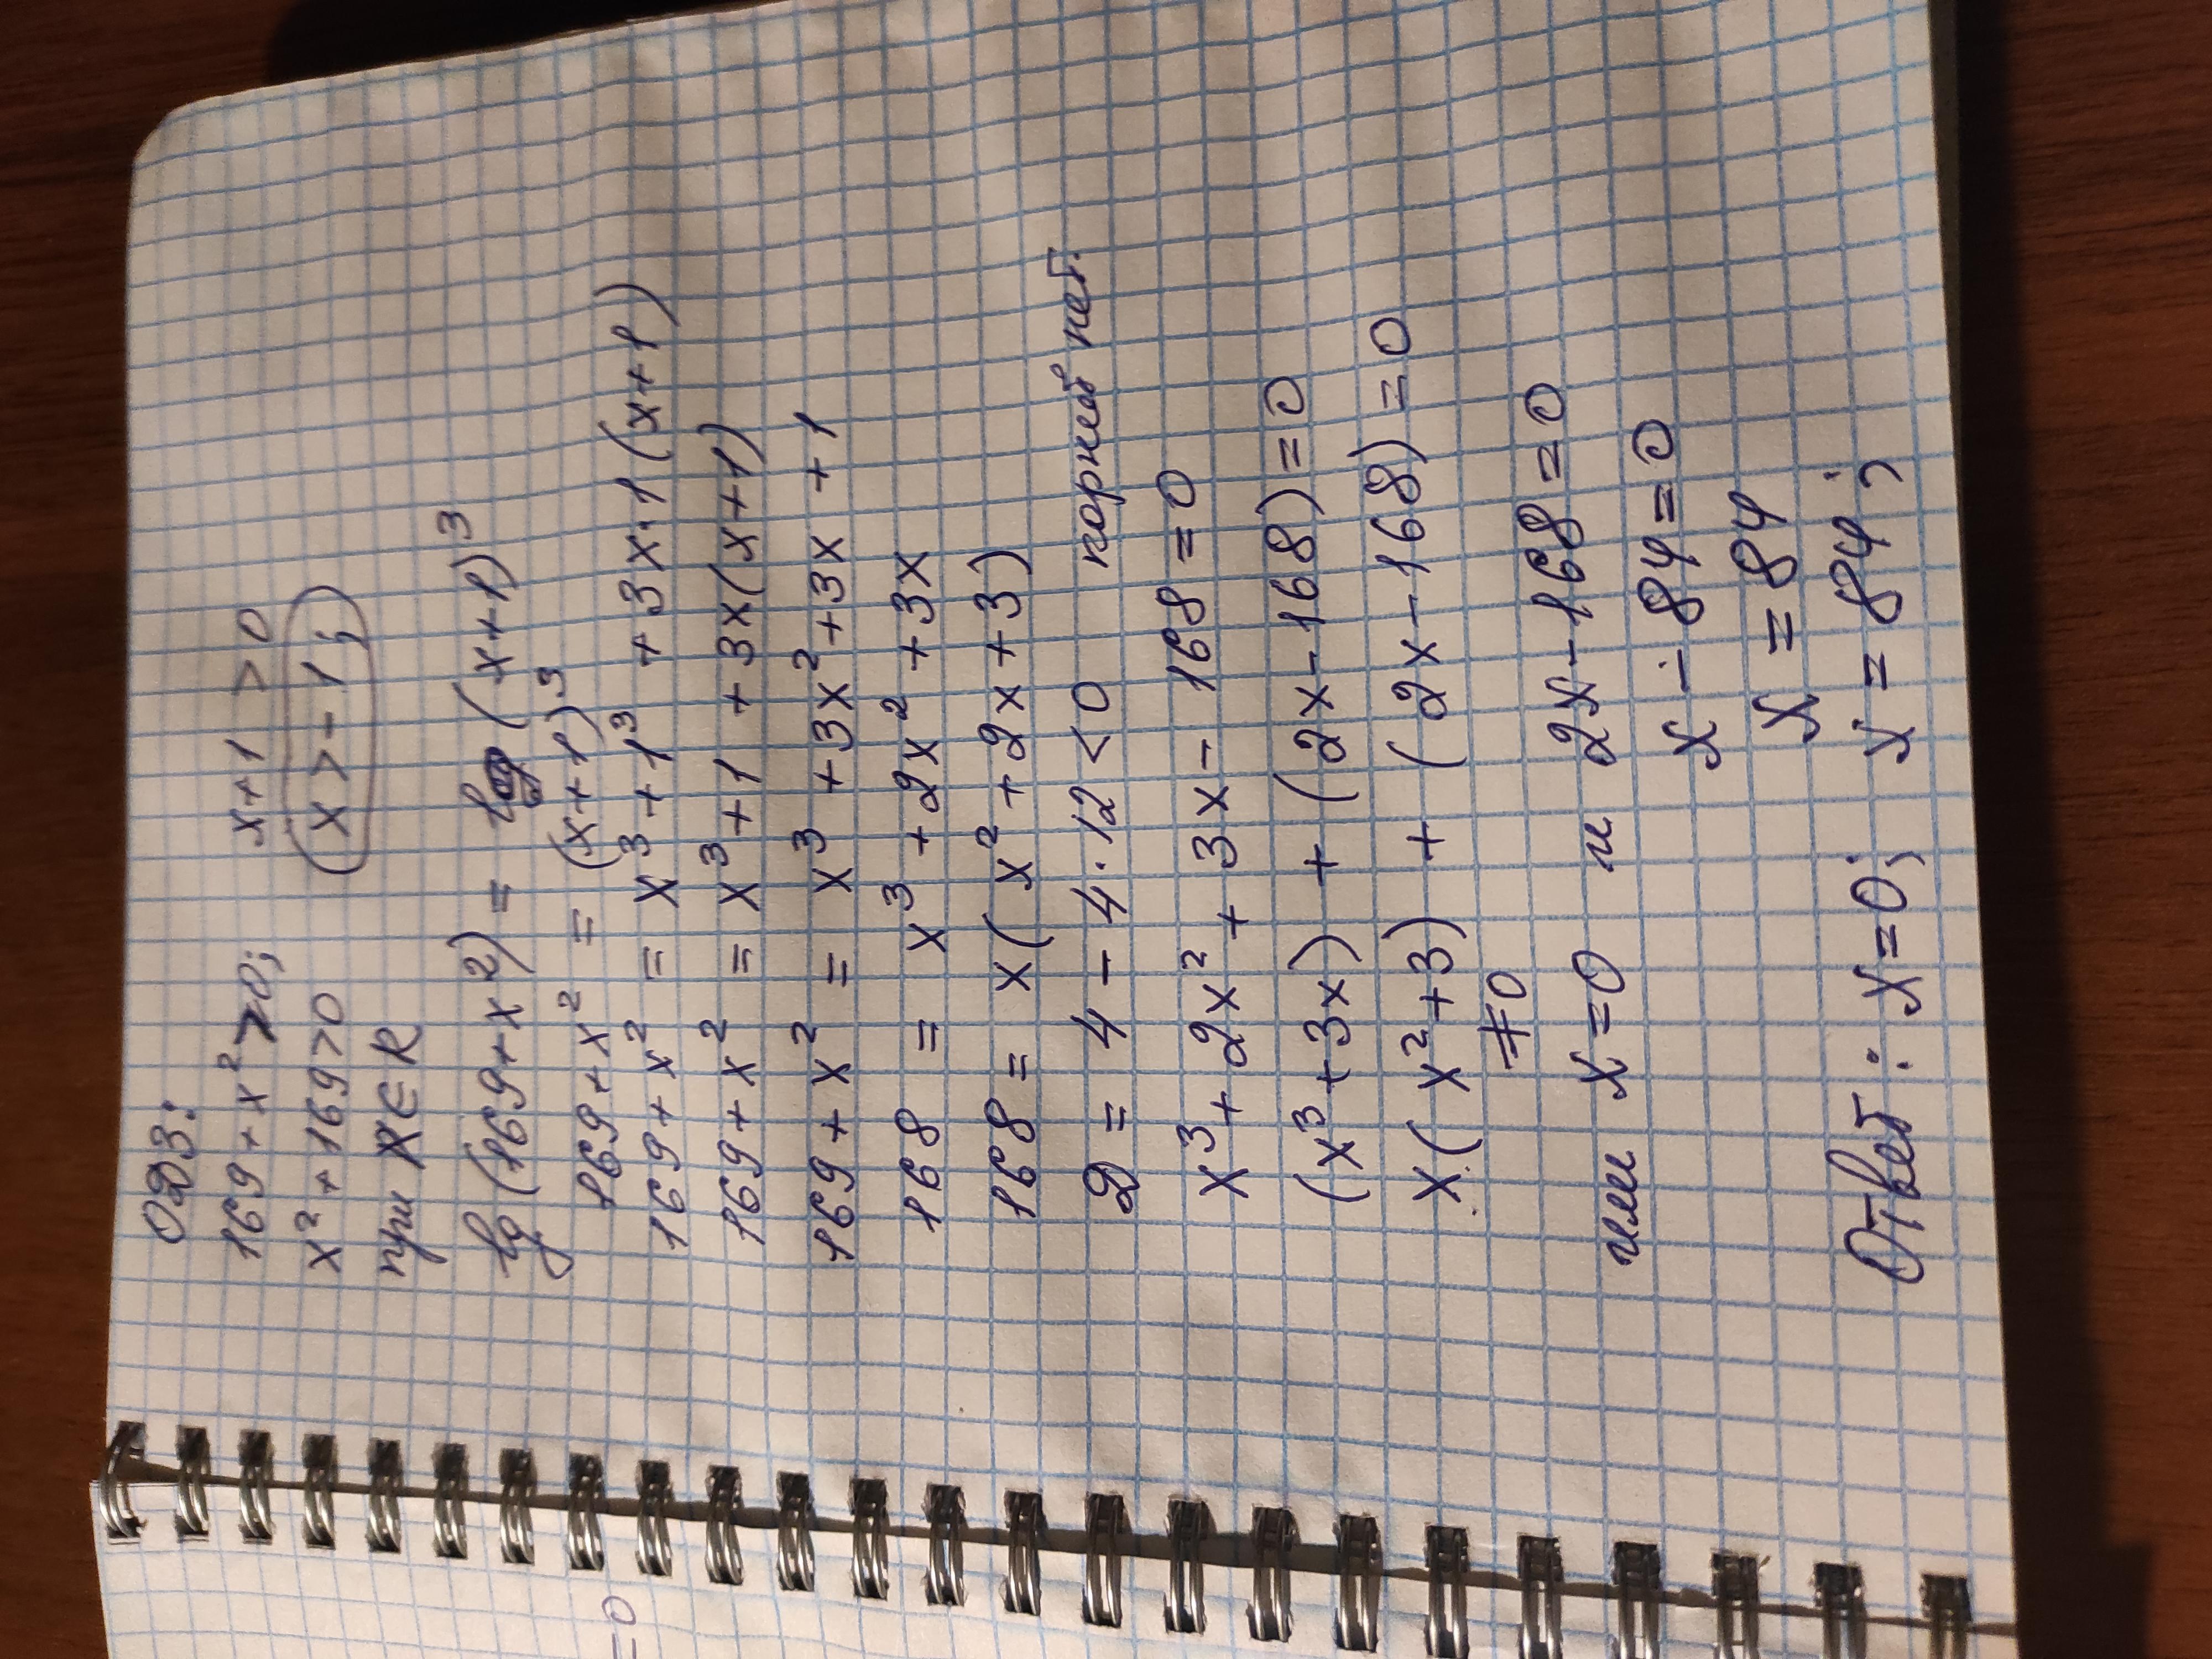 ОДЗ:
169 + x² > 0; x + 1 > 0
x² + 169 > 0 (x > -1;)
при x ∈ R
lg (169 + x²) = log (x + 1)³
169 + x² = (x + 1)³
169 + x² = x³ + 1³ + 3x·1 (x + 1)
169 + x² = x³ + 1 + 3x (x + 1)
169 + x² = x³ + 3x² + 3x + 1
168 = x³ + 2x² + 3x
168 = x (x² + 2x + 3)
D = 4 - 4·12 < 0 корней нет.
x³ + 2x² + 3x - 168 = 0
(x³ + 3x) + (2x - 168) = 0
x (x² + 3) + (2x - 168) = 0
≠ 0
или x = 0 и 2x - 168 = 0
x - 84 = 0
x = 84
Ответ: x = 0; x = 84;
=0